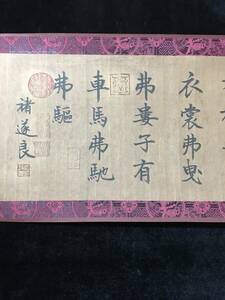 衣裳弗曳
弗婁子有
車馬弗馳
弗驅
褚遂良